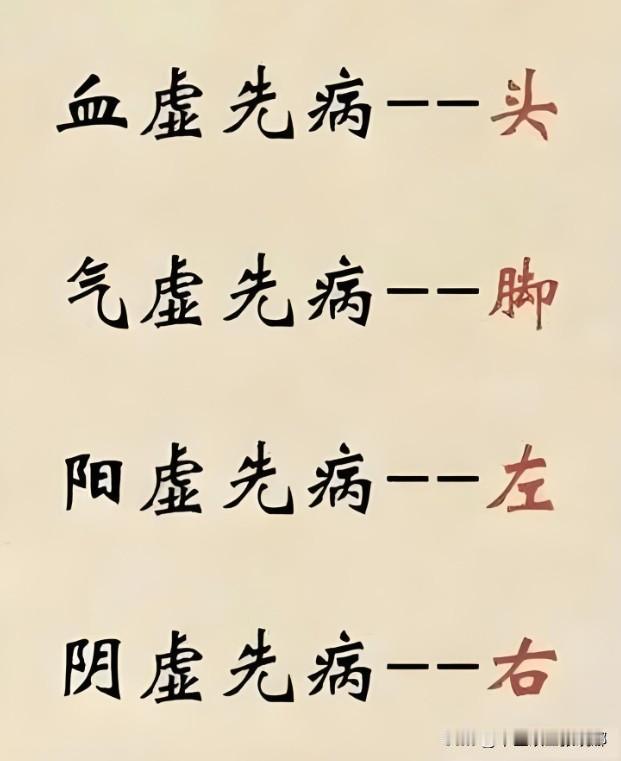 血虚先病——头
气虚先病——脚
阳虚先病——左
阴虚先病——右